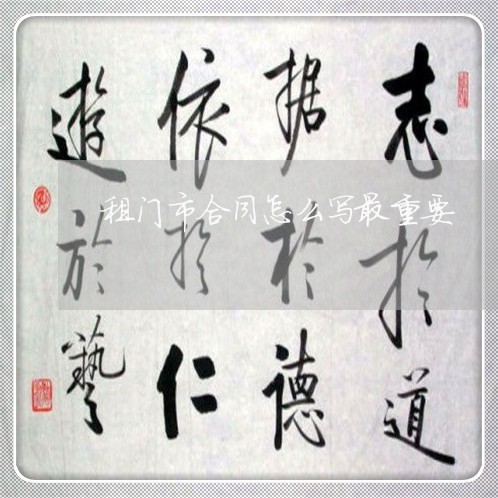 志於道
据於德
依於仁
遊於藝
租门市合同怎么写最重要